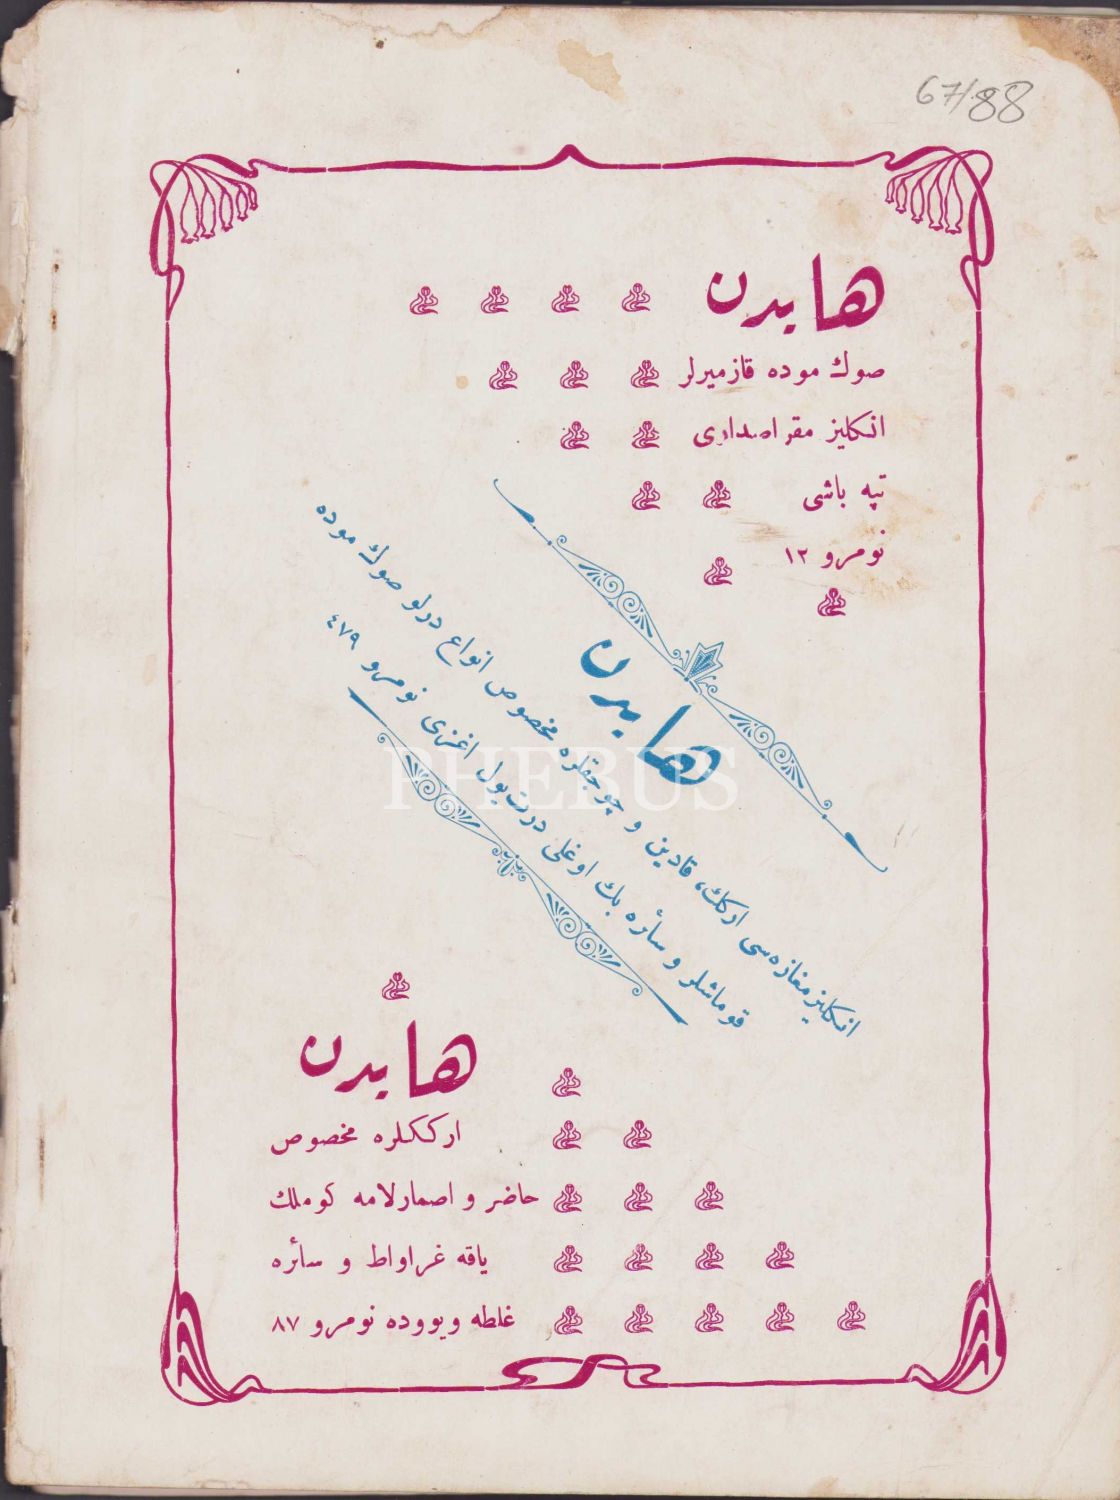 67/88
هایدن
صوڭ موده قازمیرلر
انکلیز مقراصداری
تپه باشی
نومرو ١٢
هایدن
انکلیز مغازه‌سی ارکك، قادین و چوجقلره مخصوص انواع درلو صوڭ موده
قوماشلر و سأره بك اوغلی درت یول اغزی نومرو ٤٧٩
PHEBUS
هایدن
ارککلره مخصوص
حاضر و اصمارلامه کوملك
یاقه غراواط و سأره
غلطه ویووده نومرو ٨٧